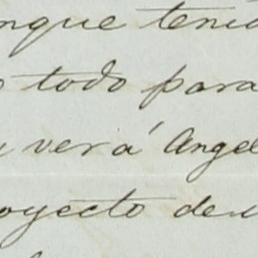 nque tenia
todo para
verá Angel
oyecto de